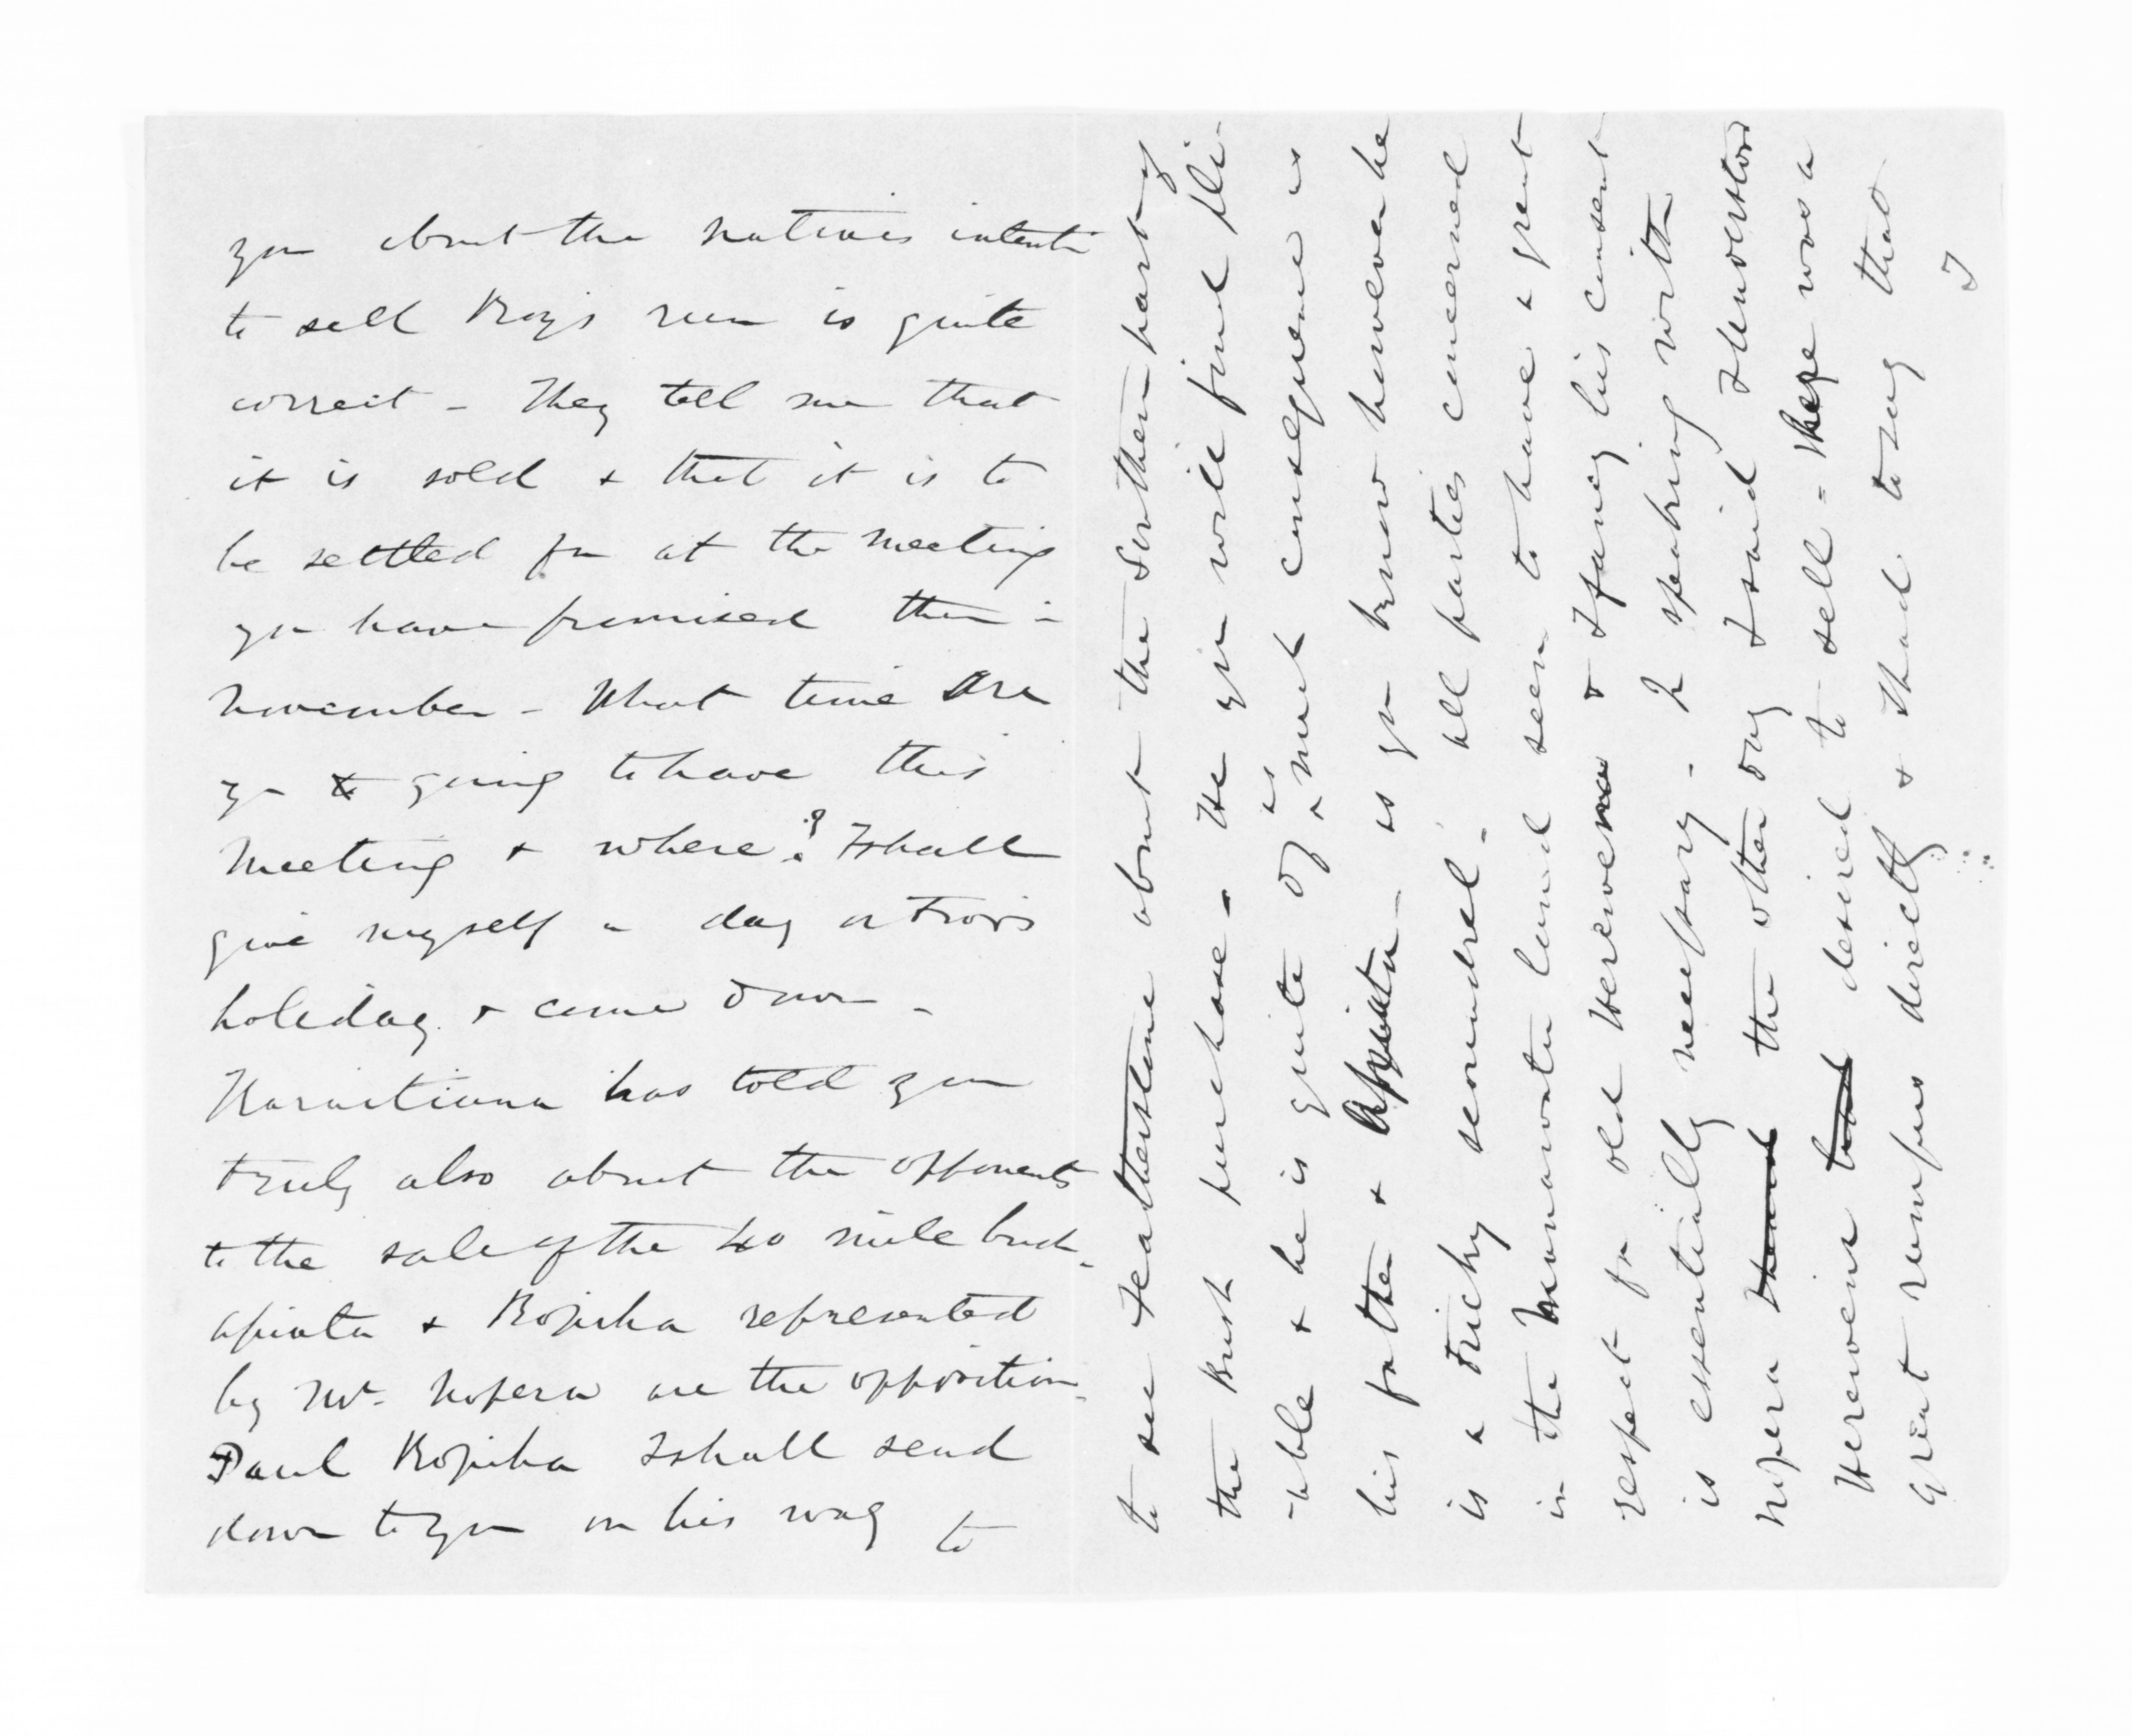 you about the natives intenti
to sell Kays run is quite
correct - They tell me that
it is sold & that it is to
be settled for at the meeting
you have promised them in
November - What time are
you going to have this
meeting & where? I shall
give myself a day or two's
holiday & come down -
Karaitiana has told you
truly also about the opponents
to the sale of the 40 mile bush -
Apiata & Kopiha represented
by Wt. Hopera are the opposition -
Paul Kopiha I shall send
down to you on his way to
to see Featherstone about the southern part of
the Bush purchase - He you will find pli-
-able & he is quite of as much consequence as
his father & Apiata - as you know however he
is a tricky scoundrel - all parties concerned
in the Manawatu land seem to have a great
respect for old Herewini & I fancy his consent
is essentially necessary - In speaking with
Hopera the other day I said I understood
Herewini had desired to sell - there was a
great rumpus directly & I had to say that
I